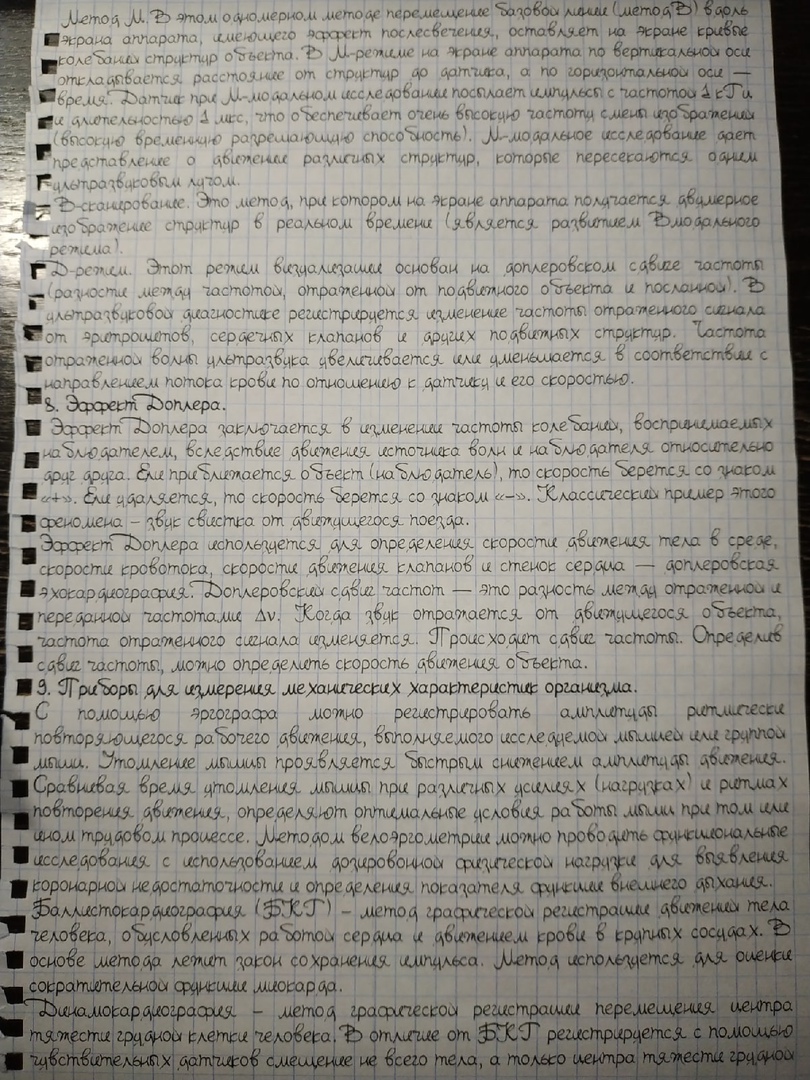 Метод М. В этом одномерном методе перемещение базовой линии (метод В) вдоль
экрана аппарата, имеющего эффект послесвечения, оставляет на экране кривые
колебаний структур объекта. В М-режиме на экране аппарата по вертикальной оси
откладывается расстояние от структур до датчика, а по горизонтальной оси —
время. Датчик при М-модальном исследовании посылает импульсы с частотой 1 кГц
и длительностью 1 мкс, что обеспечивает очень высокую частоту смены изображений
(высокую временную разрешающую способность). М-модальное исследование дает
представление о движении различных структур, которые пересекаются одним
ультразвуковым лучом.
В-сканирование. Это метод, при котором на экране аппарата получается двумерное
изображение структур в реальном времени (является развитием Вмодального
режима).
D-режим. Этот режим визуализации основан на доплеровском сдвиге частоты
(разности между частотой, отраженной от подвижного объекта и посланной). В
ультразвуковой диагностике регистрируется изменение частоты отраженного сигнала
от эритроцитов, сердечных клапанов и других подвижных структур. Частота
отраженной волны ультразвука увеличивается или уменьшается в соответствии с
направлением потока крови по отношению к датчику и его скоростью.
8. Эффект Доплера.
Эффект Доплера заключается в изменении частоты колебаний, воспринимаемых
наблюдателем, вследствие движения источника волн и наблюдателя относительно
друг друга. Ели приближается объект (наблюдатель), то скорость берется со знаком
«+». Ели удаляется, то скорость берется со знаком «–». Классический пример этого
феномена – звук свистка от движущегося поезда.
Эффект Доплера используется для определения скорости движения тела в среде,
скорости кровотока, скорости движения клапанов и стенок сердца — доплеровская
эхокардиография. Доплеровский сдвиг частот — это разность между отраженной и
переданной частотами Δν. Когда звук отражается от движущегося объекта,
частота отраженного сигнала изменяется. Происходит сдвиг частоты. Определив
сдвиг частоты, можно определить скорость движения объекта.
9. Приборы для измерения механических характеристик организма.
С помощью эргографа можно регистрировать амплитуды ритмически
повторяющегося рабочего движения, выполняемого исследуемой мышцей или группой
мышц. Утомление мышцы проявляется быстрым снижением амплитуды движения.
Сравнивая время утомления мышцы при различных усилиях (нагрузках) и ритмах
повторения движения, определяют оптимальные условия работы мышц при том или
ином трудовом процессе. Методом велоэргометрии можно проводить функциональные
исследования с использованием дозированной физической нагрузки для выявления
коронарной недостаточности и определения показателя функции внешнего дыхания.
Баллистокардиография (БКГ) – метод графической регистрации движений тела
человека, обусловленных работой сердца и движением крови в крупных сосудах. В
основе метода лежит закон сохранения импульса. Метод используется для оценки
сократительной функции миокарда.
Динамокардиография – метод графической регистрации перемещения центра
тяжести грудной клетки человека. В отличие от БКГ регистрируется с помощью
чувствительных датчиков смещение не всего тела, а только центра тяжести грудной